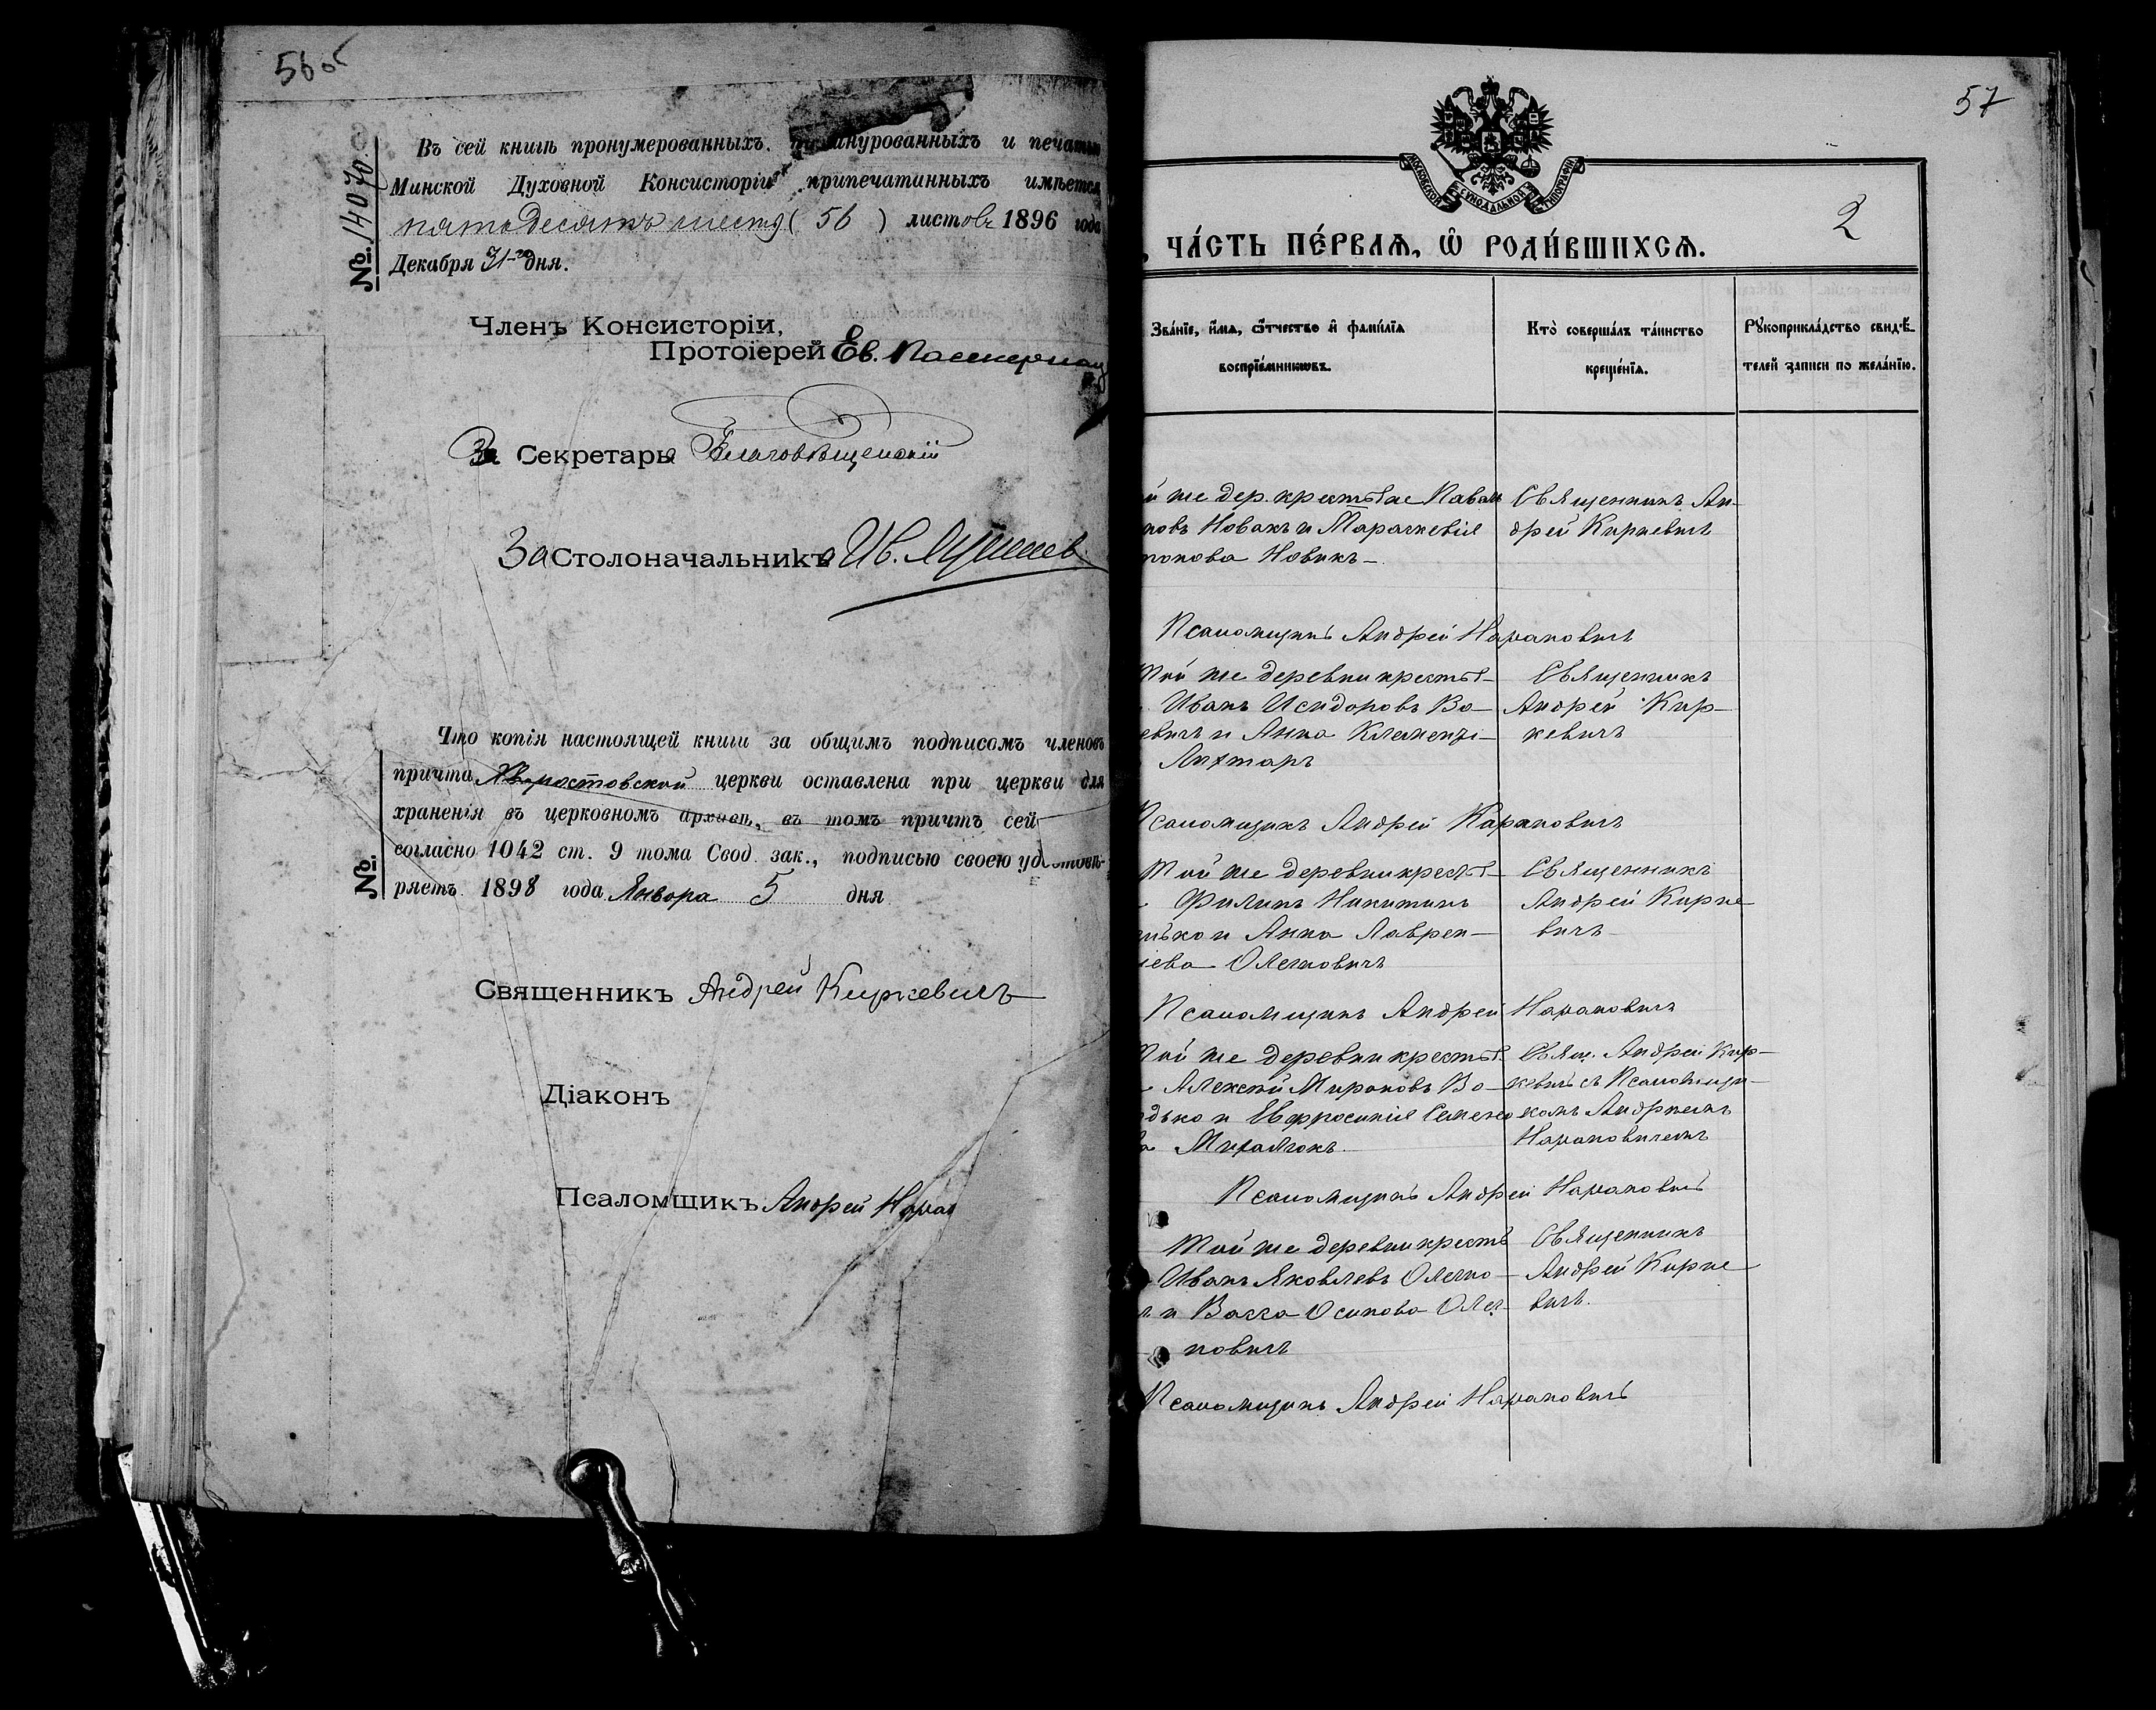 56 об
№ 14070.
Въ сей книгѣ пронумерованныхъ, прошнурованныхъ и печатью
Минской Духовной Консисторіи припечатанныхъ имѣется
пятьдесятъ шесть ( 56 ) листовъ 1896 года
Декабря 31-го дня.
Членъ Консисторіи,
Протоіерей Ев.
За Секретаря Благовѣщенскій
За Столоначальника Ив.
№
Что копія настоящей книги за общимъ подписомъ членовъ
причта Хворостовской церкви оставлена при церкви для
храненія въ церковномъ архивѣ, въ томъ причтъ сей
согласно 1042 ст. 9 тома Свод. зак., подписью своею удостовѣ-
ряетъ 1898 года Января 5 дня
Священникъ Андрей Киркевичъ
Діаконъ
Псаломщикъ Андрей Нара
57
МОСКОВСКОЙ СѴНОДАЛЬНОЙ ТИПОГРАФІИ
2
ЧА́СТЬ ПЕ́РВАѦ, Ѡ҆ РОДИ́ВШИХСѦ.
Зва́нїе, и҆́мѧ, ѻ҆́тчество и҆ фамилїа
воспрїе́мникѡвъ.
Кто̀ соверша́лъ та́инство
креще́нїѧ.
Рꙋкоприкла́дство свидѣ́-
телей записи по жела́нїю.
й же дер. крестьяне Павелъ
новъ Новикъ и Параскевія
понова Новикъ
Священникъ Ан-
дрей Киркевичъ
Псаломщикъ Андрей Нарановичъ
той же деревни крестья-
Иванъ Исидоровъ Во-
евичъ и Анна Клементі-
Лихтаръ
Священникъ
Андрей Кир-
кевичъ
Псаломщикъ Андрей Нарановичъ
Той же деревни крестья-
Филипъ Никитинъ
нько и Анна Лаврен-
іева Олехновичъ
Священникъ
Андрей Кирке-
вичъ
Псаломщикъ Андрей Нарановичъ
Той же деревни крестья-
Алексѣй Мироновъ Во-
дько и Евфросинія Семено
ва Михалюкъ.
Свящ. Андрей Кир-
кевичъ съ Псаломщи-
комъ Андреемъ
Нарановичемъ
Псаломщикъ Андрей Нарановичъ
той же деревни крестья
Иванъ Яковлевъ Олехно-
и Васса Осипова Олех-
новичъ
Священникъ
Андрей Кирке-
вичъ.
Псаломщикъ Андрей Нарановичъ